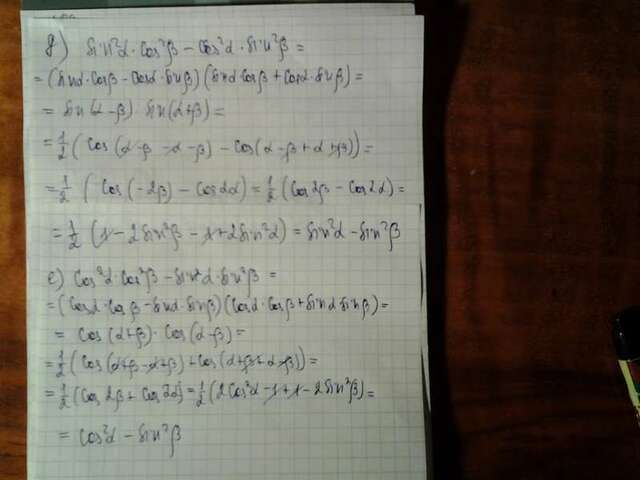 д) sin²α·cos²β – cos²α·sin²β =
= (sinα·cosβ – cosα·sinβ)(sinα cosβ + cosα·sinβ) =
= sin(α – β)·sin(α+β) =
= 1/2 (cos(α – β – α – β) – cos(α – β + α + β)) =
= 1/2 (cos(–2β) – cos2α) = 1/2 (cos2β – cos2α) =
= 1/2 (1 – 2sin²β – 1 + 2sin²α) = sin²α – sin²β
е) cos²α·cos²β – sin²α·sin²β =
= (cosα·cosβ – sinα·sinβ)(cosα·cosβ + sinα sinβ) =
= cos(α+β)·cos(α–β) =
= 1/2 (cos(α+β – α+β) + cos(α+β + α–β)) =
= 1/2 (cos2β + cos2α) = 1/2 (2cos²α – 1 + 1 – 2sin²β) =
= cos²α – sin²β